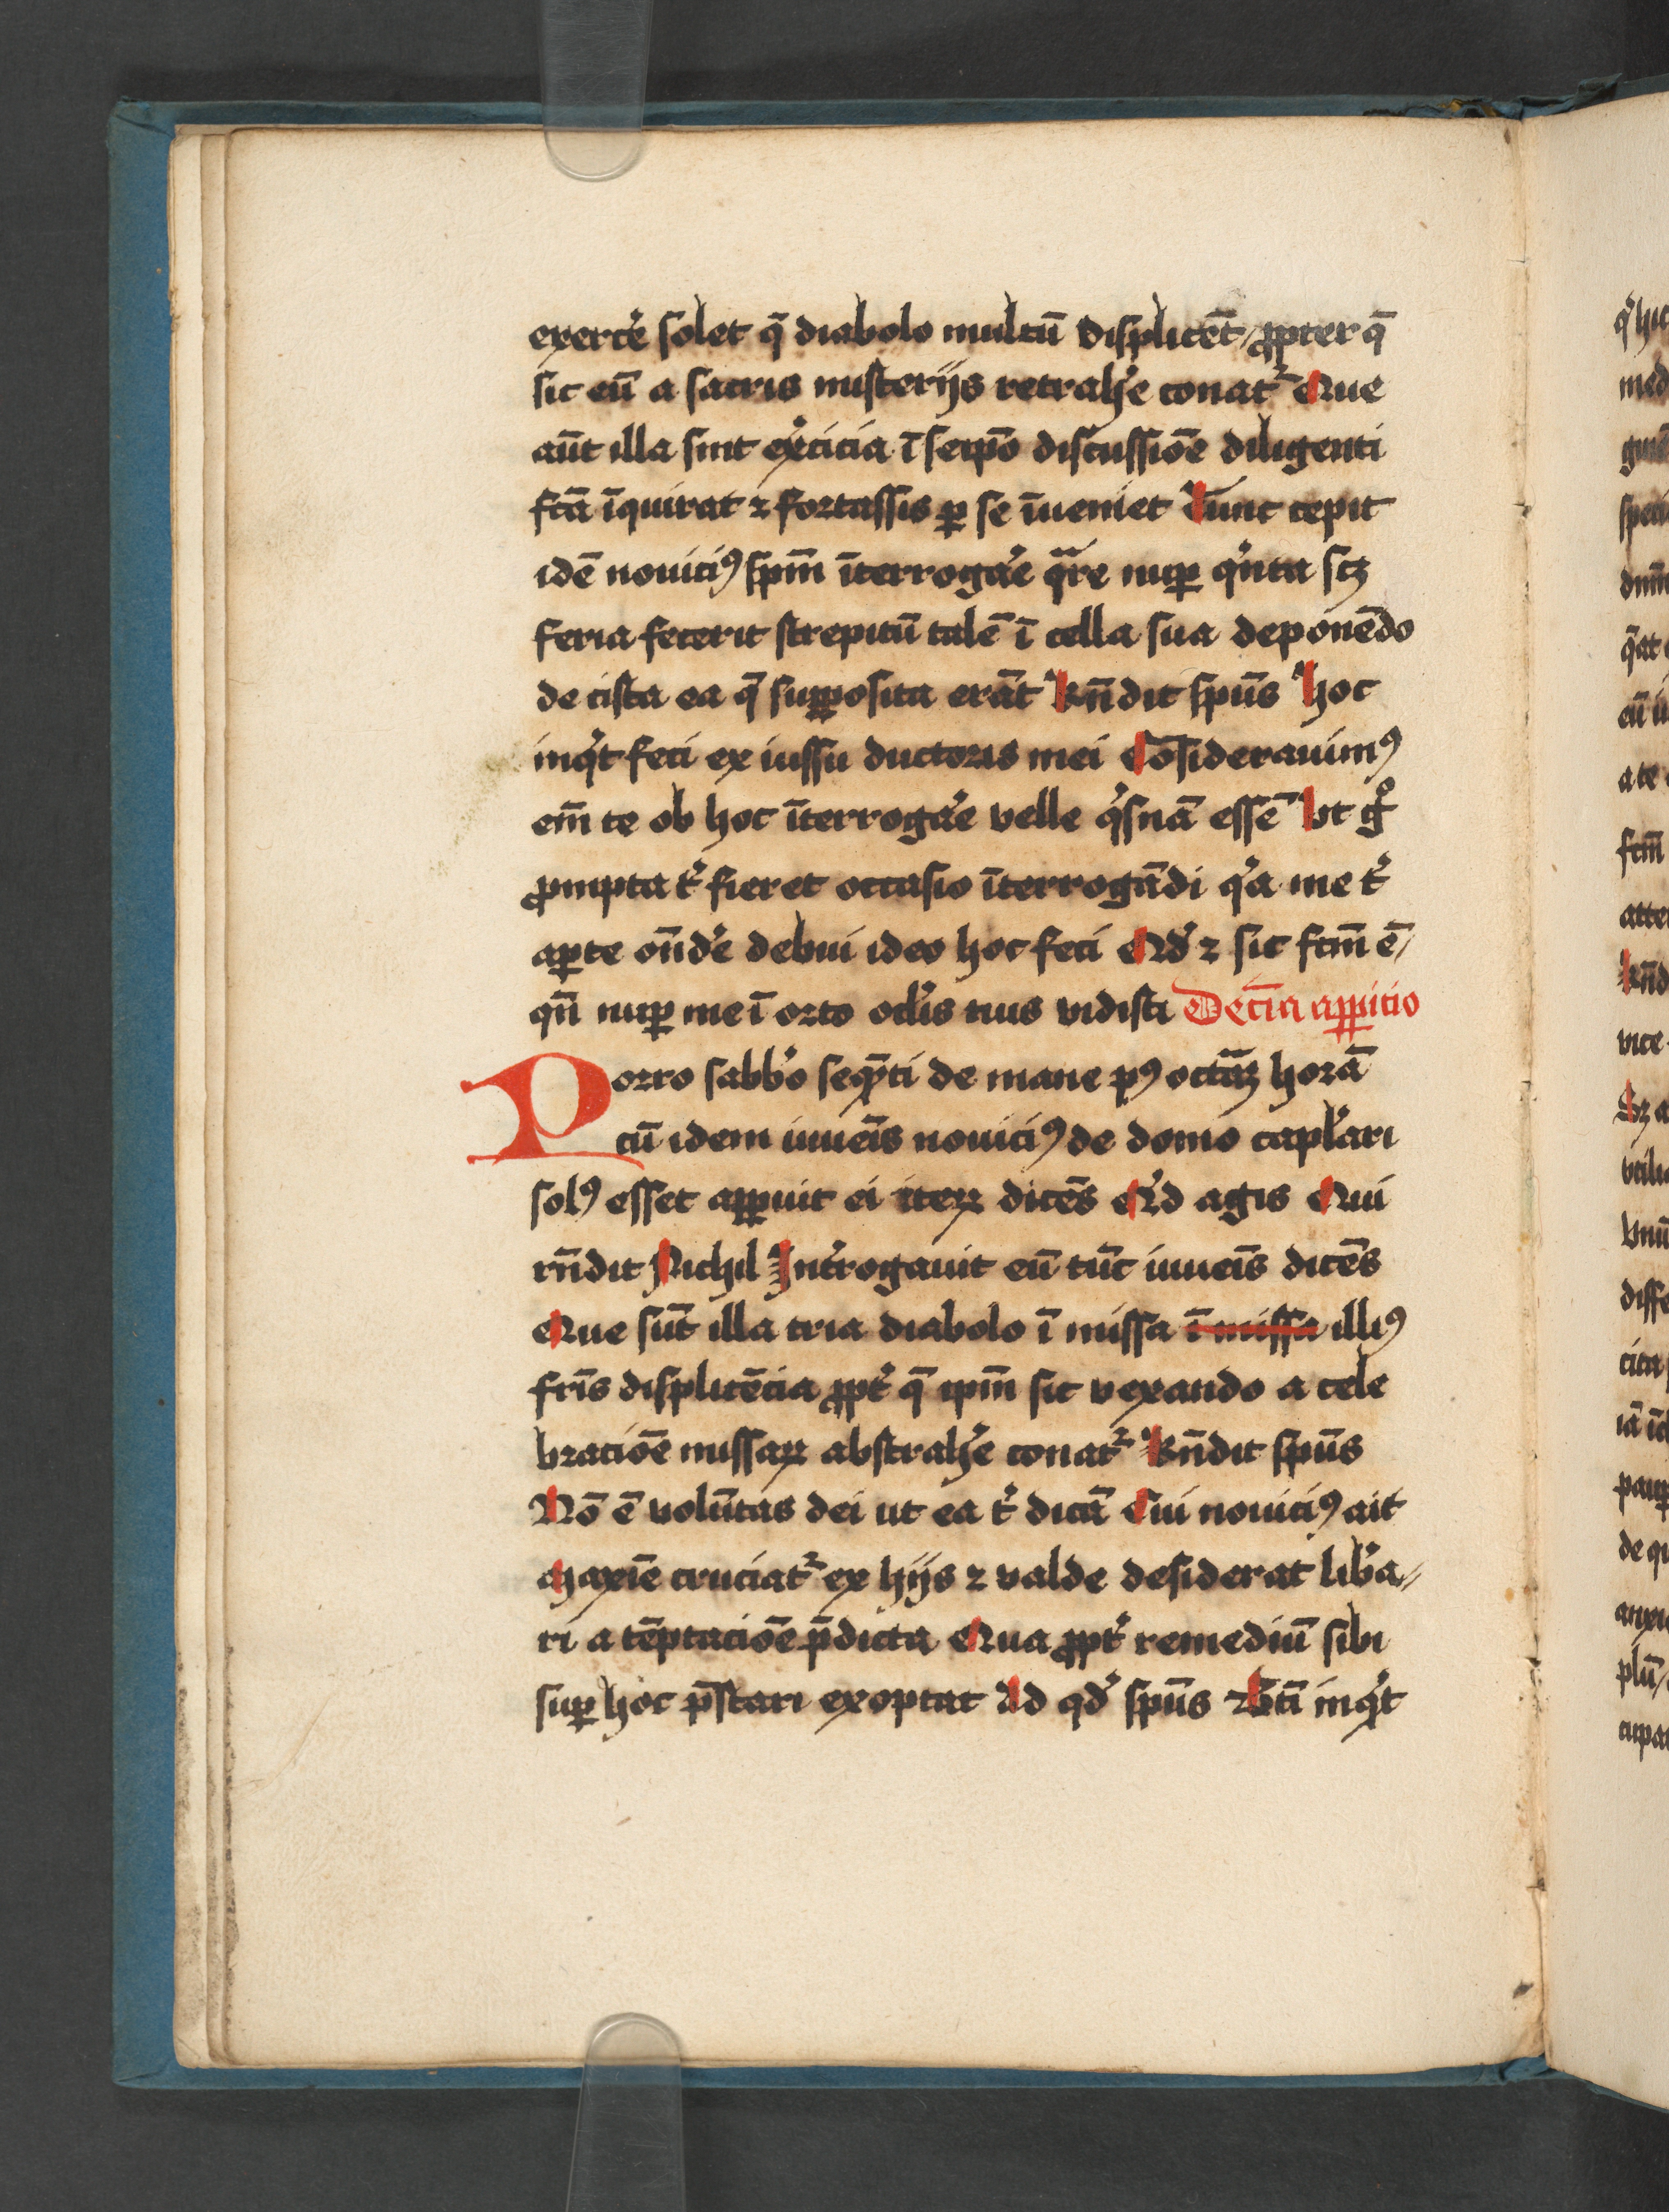 exerc̄e solet q̄ diabolo multū displicēt / ꝓpter q̄
sic eū a sacris misterijs retrahe᷑ conat᷑ Que
aūt illa sint ex᷑cicia ī seip̄o discussiōe diligenti
fcā īquirat ⁊ fortassis ꝑ se īueniet Tunc cepit
idē nouiciꝰ sp̄m īterrogar᷑e q̄re nuꝑ qⁱnta scꝫ
feria fecerit strepitū talē ī cella sua deponēdo
de cista ea q̄ suꝑposita erāt Rn̄dit sp̄us Hoc
inqⁱt feci ex iussu ductoris mei Cōsiderauimꝰ
em̄ te ob hoc īterroga᷑e velle qⁱsnā essē Vt gͦ
ꝓmpta t᷑ fieret occasio īterrogādi qⁱa me t᷑
aꝑte on̄de᷑ debui ideo hoc feci Qd᷑ ⁊ sic fcm̄ ē /
qn̄ nuꝑ me ī orto oclis tuis vidisti Decīa aꝑpicio
Porro sabbo᷑ seqn̄ti de mane pꝰ octāꝫ horā
cū idem iuueīs nouiciꝰ de domo capla᷑ri
solꝰ esset aꝑpuit ei iteꝝ dicēs Qⁱd agis Qui
rn̄dit Nichil Int᷑rogauit eū tūc iuueīs dicēs
Que sūt illa tria diabolo ī missa ī missa illiꝰ
fr̄is displicēcia ꝓpt᷑ q̄ ipm̄ sic vexando a cele
braciōe missaꝝ abstrahe᷑ conat᷑ Rn̄dit sp̄us
Nō ē volūtas dei ut ea t᷑ dicā Cui nouiciꝰ ait
Maxīe cruciat᷑ ex hijs ⁊ valde desiderat lib᷑a⸗
ri a tēptaciōe p̄dicta Qua ꝓpt᷑ remediū sibi
suꝑ hoc p̄stari exoptat Ad qd᷑ sp̄us inqⁱt